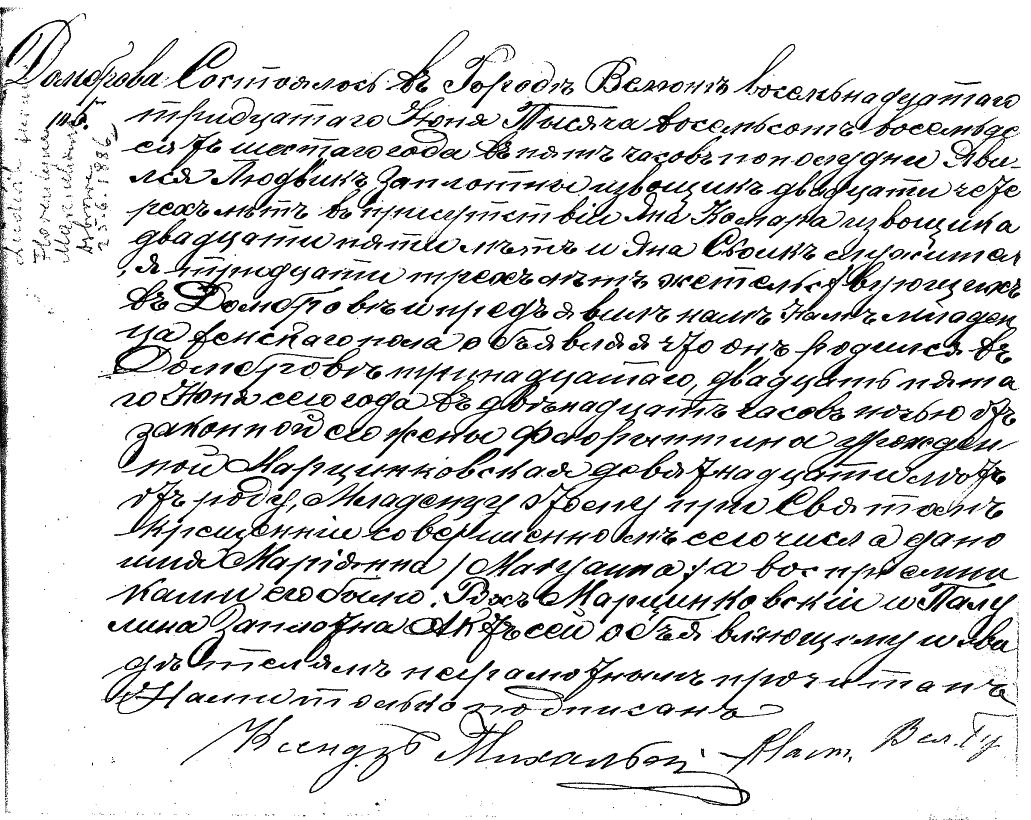 Домброва Состоялось въ Городѣ Велюнѣ восемьнадцатаго
105. тридцатаго Юня Тысяча восемьсотъ восемьде
сятъ шестаго года въ пять часовъ пополудни Яви-
лся Людвикъ Заплотны извощикъ двадцати чете
рехъ лѣтъ въ присутствіи Яна Комара извощика
двадцати пяти лѣтъ и Яна служител
я тридцати трехъ лѣтъ жительствующихъ
въ Домбровѣ и предъявилъ намъ младен
ца женскаго пола объявляя что онъ родился въ
Домбровѣ тринадцатаго, двадцать пята
го Юня сего года въ двѣнадцать часовъ ночью отъ
законной его жены урожден
ной Марцинковская девятнадцати лѣтъ
отъ роду, Младенцу этому при Святомъ
крещеніи совершенномъ сего числа дано
имя Маріянна / Маryanna / а воспріемни
ками его были. Марцинковскій и Паву
лина Заплотна Актъ сей объявляющему и сви
дѣтелямъ неграмотнымъ прочитанъ
Нами только подписанъ
Ксендзъ Михальскій
Ludwik
Florentyna
Dąbrowa
25.6.1886